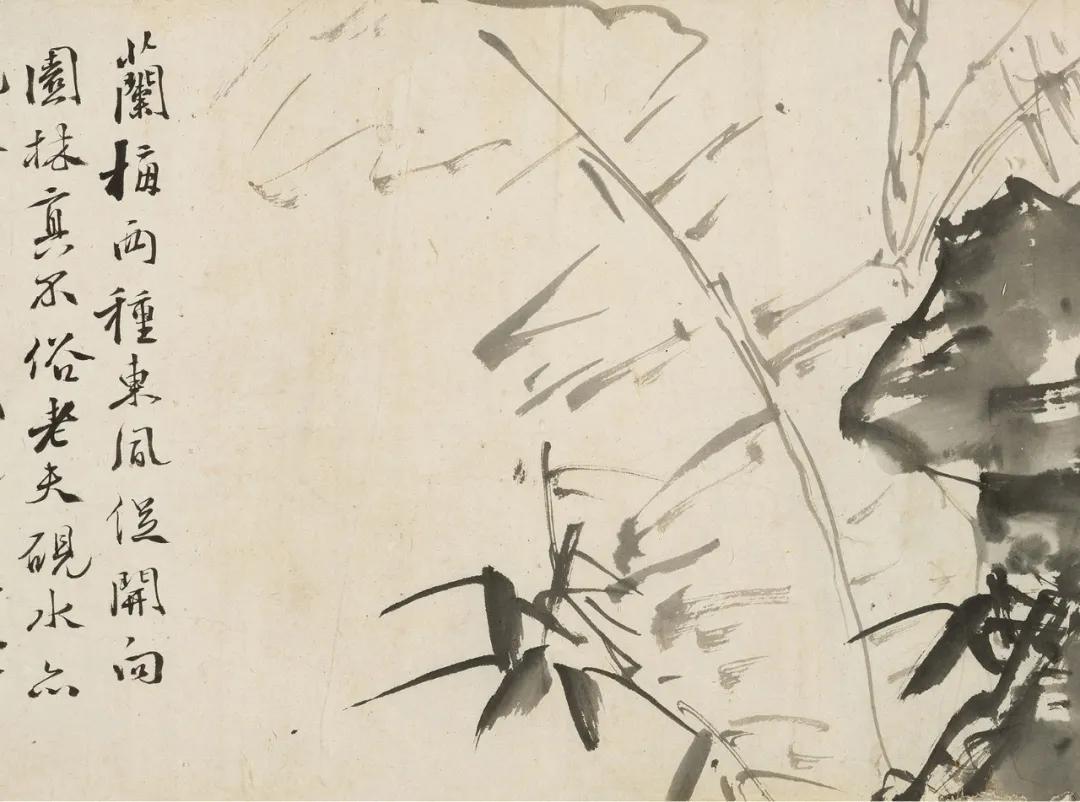 蘭梅两種東風促開向
園林真不俗老夫硯水亦